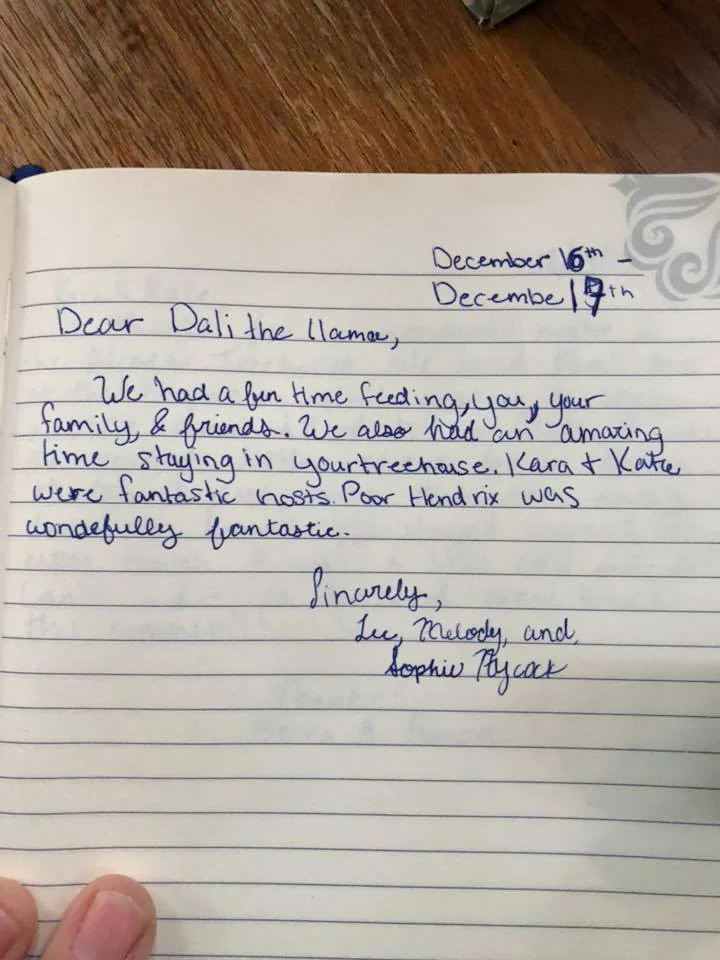 December 16th -
Decembe 17th
Dear Dali the llama,
We had a fun time feeding, you, your
family, & friends. We also had an amazing
time staying in your treehouse. Kara & Katie
were fantastic hosts. Poor Hendrix was
wondefully frantastic.
Sincarely,
Lee, Melody, and
Sophie Paycock